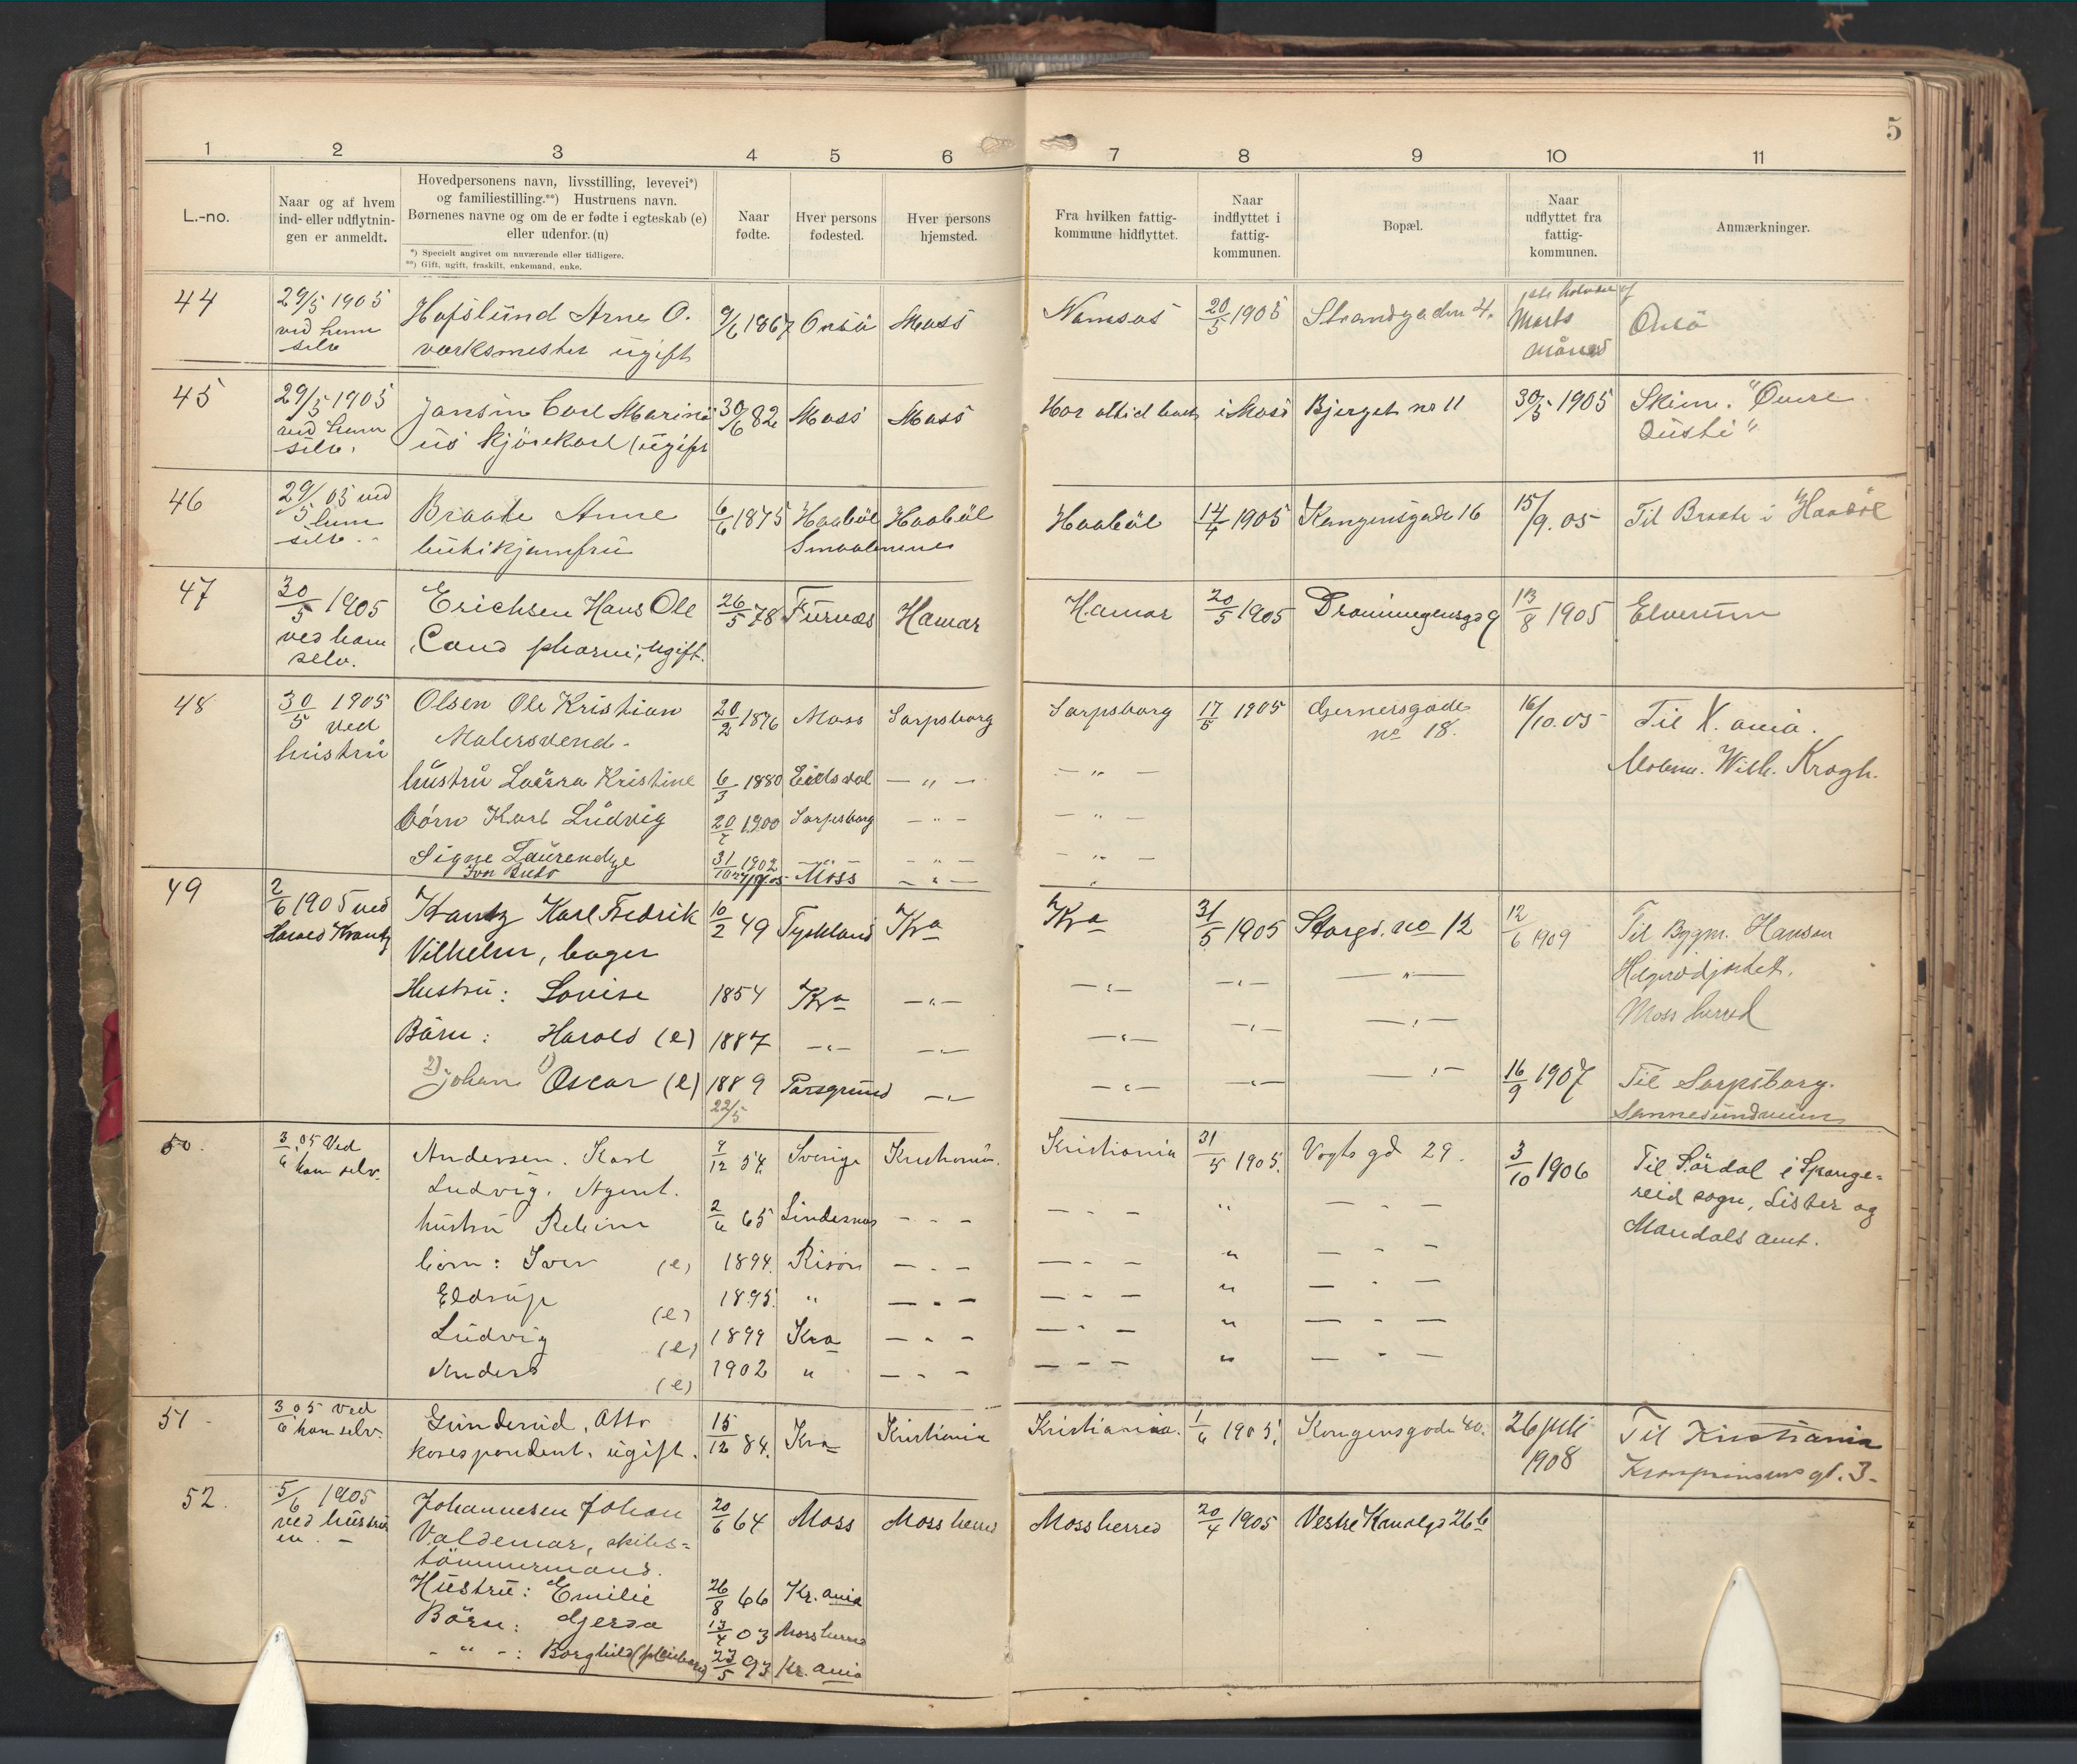 5
1 2 3 4 5 6 7 8 9 10 11
L.-no.
Naar og af hvem
ind- eller udflytnin-
gen er anmeldt.
Hovedpersonens navn, livsstilling, levevei*)
og familiestilling.**) Hustruens navn.
Børnenes navne og om de er fødte i egteskab (e)
eller udenfor. (u)
*) Specielt angivet om nuværende eller tidligere.
**) Gift, ugift, fraskilt, enkemand, enke.
Naar
fødte.
Hver persons
fødested.
Hver persons
hjemsted.
Fra hvilken fattig-
kommune hidflyttet.
Naar
indflyttet i
fattig-
kommunen.
Bopæl.
Naar
udflyttet fra
fattig-
kommunen.
Anmærkninger.
44 29/5 1905 Hafslund Arne O. 9/6 1867 Onsö Moss Namsos 20/5 1905 Strandgaden 4. Marts Onsö
ved ham
selv værksmester ugift måned
45 29/5 1905 Jansen Carl Marini 30/6 82 Moss Moss Har altid boet i Moss Bjerget no 11 30/5 1905 Skien.
ved ham
selv. us kjörekarl (ugift
46 29/5 05 ved Braate Anne 6/6 1875 Haaböl Haaböl Haaböl 14/4 1905 Kongensgade 16 15/9.05 Til Braate i Haaböl
selv. butikjomfru Smaalenene
47 30/5 1905 Erichsen Hans Ole 26/5 78 Furnæs Hamar Hamar 20/5 1905 Dronningensgd 9 13/8 1905 Elverum
ved ham
selv. Cand pharm, ugift.
48 30/5 1905 Olsen Ole Kristian 20/2 1876 Moss Sarpsborg Sarpsborg 17/5 1905 Gernersgade 16/10.05 Til X.ania.
ved
hustru Malersvend. no 18.
Malerm. Wilh. Krogh.
hustru Laura Kristine 6/3 1880 Eidsvol — " — — " —
börn Karl Ludvig 20/7 1900 Sarpsborg — " — — " —
Signe Laurendze 31/10 1902 — " — — " — — " —
Moss — " — "
49 2/6 1905 ved Krantz Karl Fredrik 10/2 49 Tyskland Kra Kra 31/5 1905 Storgd. no 12 12/6 1909 Til Bygm. Hansen
Harald Krantz Vilhelm, bager
Moss herred
Hustru: Lovise 1854 Kra — " — — " — — " — — " —
Börn: Harald (e) 1887 — " — — " — — " — — " — — " —
2) Johan 1) Oscar (e) 1889 Porsgrund — " — — " — — " — — " — 16/9 1907 Til Sarpsborg.
22/5 Sannesundveien
50. 3/6 05 Ved Andersen. Karl 7/12 54. Sverige Kristiania Kristiania 31/5 1905. Vogts gd 29. 3/10 1906 Til Sördal i Spange-
ham selv. Ludvig. Agent. reid sogn, Lister og
Mandals amt.
hustru 2/6 65 Lindesnes — " — — " — " — " —
börn: Iver (e) 1894. Risör — " — — " — " — " —
Eldrup (e) 1895. " — " — — " — " — " —
Ludvig (e) 1899 Kra — " — — " — " — " —
Anders (e) 1902 " — " — — " — " — " —
51 3/6 05 ved Gunderud, Otto 15/12 84. Kra Kristiania Kristiania. 1/6 1905. Kongensgade 40. 26 juli Til Kristiania
ham selv. korespondent, ugift. 1908 Kronprinsens gt. 3-
52. 5/6 1905 Johannesen Johan 20/6 64 Moss Moss herred Moss herred 20/4 1905 Vestre Kanalgd 26 b
ved hustru
en. — Valdemar, skibs-
tömmermand.
Hustru: Emilie 26/8 66 Kr.ania
Börn: Gerda 13/4 03 Moss herred
- " - : Borghild (pleiebarn) 23/5 93 Kr.ania